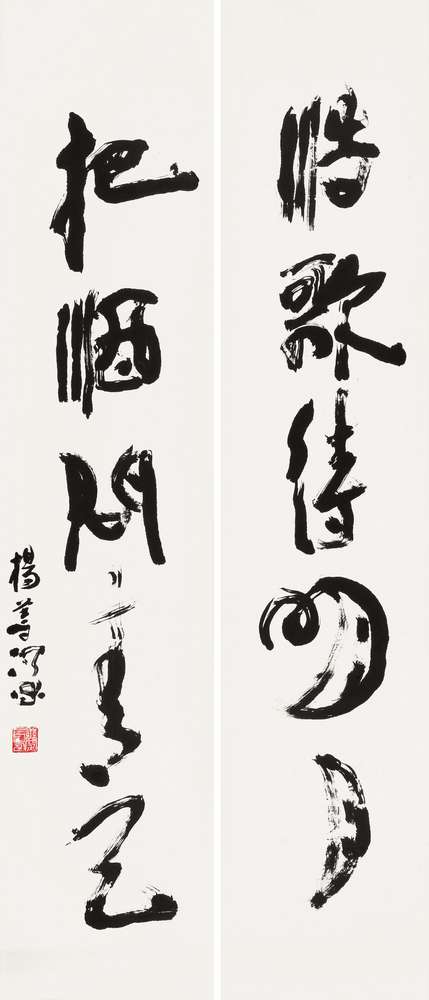 浩歌待明月
把酒問青天
楊善深